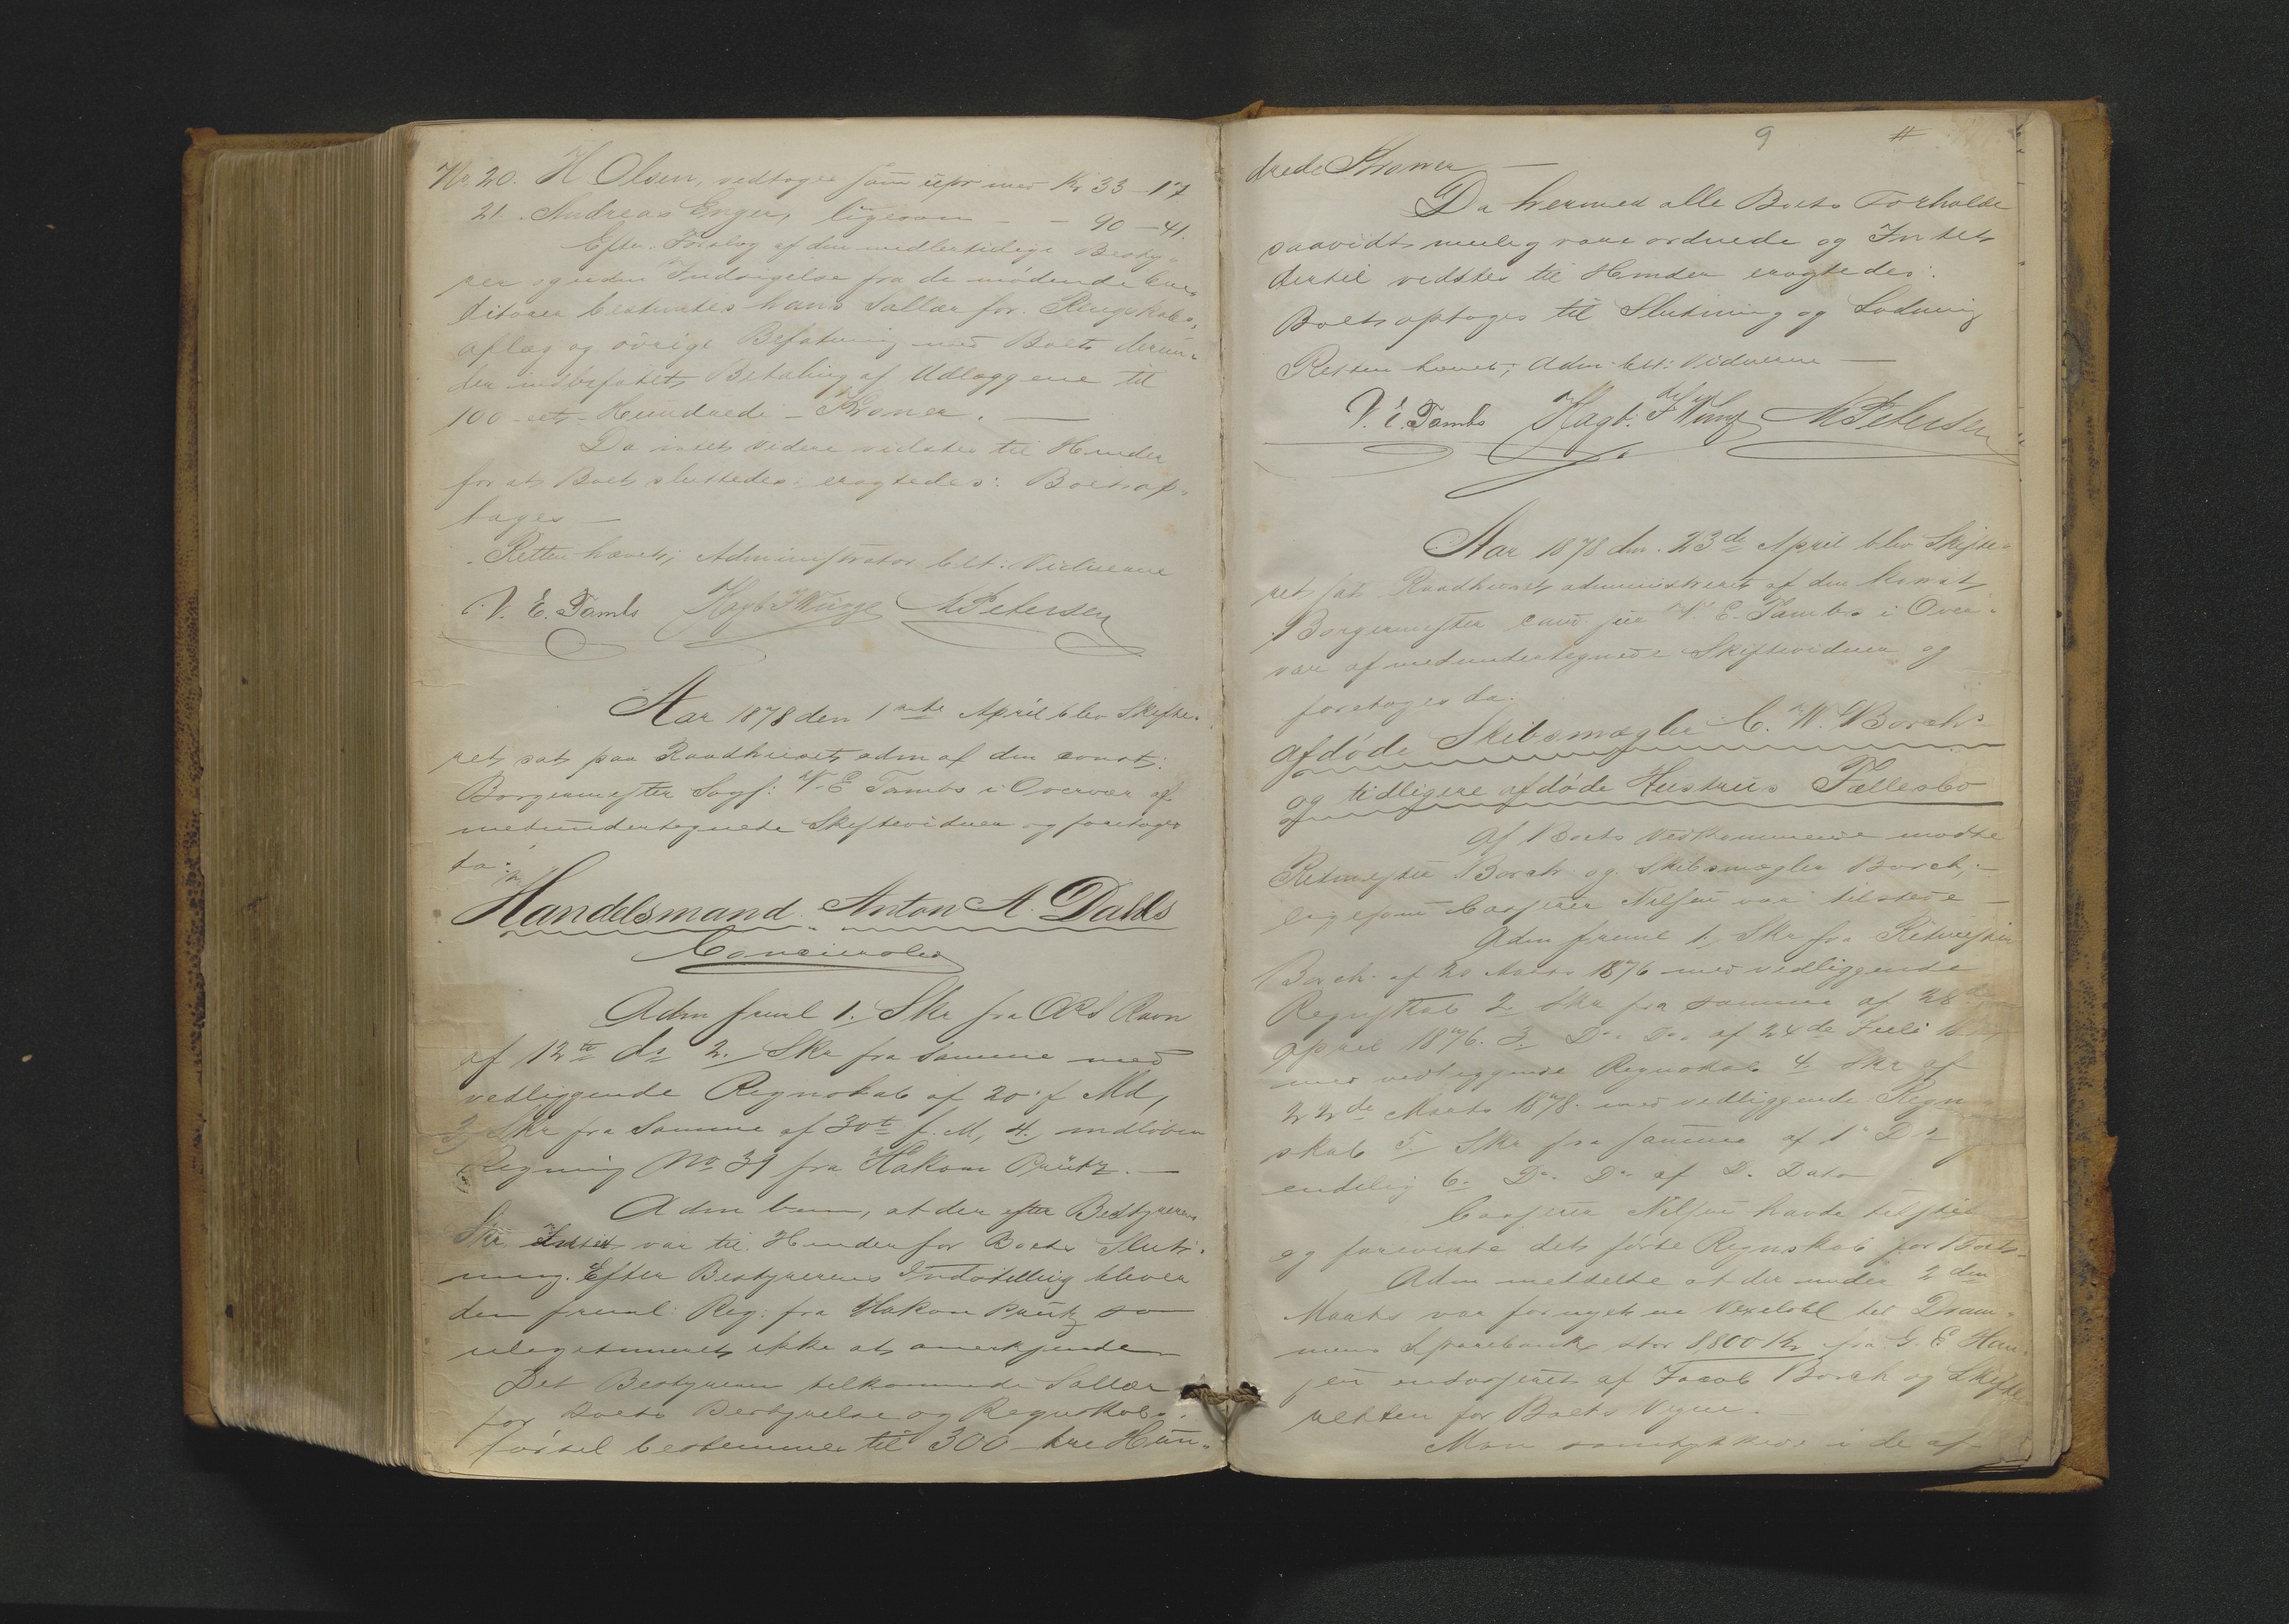 No 20. H Olsen, vedtoges som upr med Kr 33-17
21. Andreas Enger, ligesom - - 90-41.
Efter Forslag af den midlertidige Besty-
rer og uden Indsigelse fra de mødende Cre-
ditorer bestemtes hans Sallær for Regnskabs-
aflæg og øvrige Befatning med Boet derun-
der indbefattet Betaling af Udlæggene til
100 - et Hundrede - Kroner. —
Da intet videre vidstes til Hinder
for at Boet sluttedes: eragtedes: Boet op-
tages —
Retten hævet; Administrator bet: Vidnerne
V. E. Tambs Hagb. F Winge M Petersen
Aar 1878 den 1ste April blev Skifte-
ret sat paa Raadhuset adm af den const:
Borgermester Sagf: V. E Tambs i Overvær af
medundertegnede Skiftevidner og foretoges
da:
Handelsmand Anton A. Dahls
Concursbo
Adm freml 1. Skr fra ORS Ravn
af 12te ds 2. Skr fra samme med
vedliggende Regnskab af 20 f Md,
3, Skr fra Samme af 30t f. M, 4, indløben
Regning No 39 fra Hakon Prütz. —
Adm bem, at der efter Bestyrerens
Skr Intet var til Hinder for Boets Slut-
ning. Efter Bestyrerens Indstilling bliver
den freml: Reg: fra Hakon Prütz som
ulegitimeret ikke at anerkjende
Det Bestyreren tilkommende Sallær
for Boets Bestyrelse og Regnskabs-
førsel bestemmes til 300 - tre Hun-
9 #
drede Kroner —
Da hermed alle Boets Forholde
saavidt mulig vare ordnede og Intet
dertil vidstes til Hinder eragtedes:
Boet optages til Slutning og Lodning
Retten hævet; Adm bet: Vidnerne —
V. E. Tambs Hagb. F Winge M Petersen
Aar 1878 den 23de April blev Skifte-
ret sat Raadhuset administreret af den konst
Borgermester cand jur V. E. Tambs i Over-
vær af medundertegnede Skiftevidner og
foretoges da:
afdøde Skibsmægler C. W. Borchs
og tidligere afdøde Hustrus Fællesbo
Af Boets Vedkommende mødte
Ritmester Borch og Skibsmægler Borch, —
ligesom Casserer Nilsen var tilstede —
Adm freml 1, Skr fra Ritmester
Borch af 20 Marts 1876 med vedliggende
Regnskab 2 Skr fra samme af 28de
April 1876. 3. Do. Do. af 24de Juli
med vedliggende Regnskab 4. Skr af
22de Marts 1878 med vedliggende Regn-
skab 5. Skr fra samme af 1 Ds
endelig 6. Do. Do af D. Dato
Casserer Nilsen havde
og foreviste det førte Regnskab for Boet.
Adm meddelte at der under 2den
Marts var fornyet en Vexelobl til Dram-
mens Sparebank stor 8800 Kr fra G. E. Han-
sen endosseret af Jacob Borch og Skifte-
retten for Boets Vegne.
Man samtykkede i de af